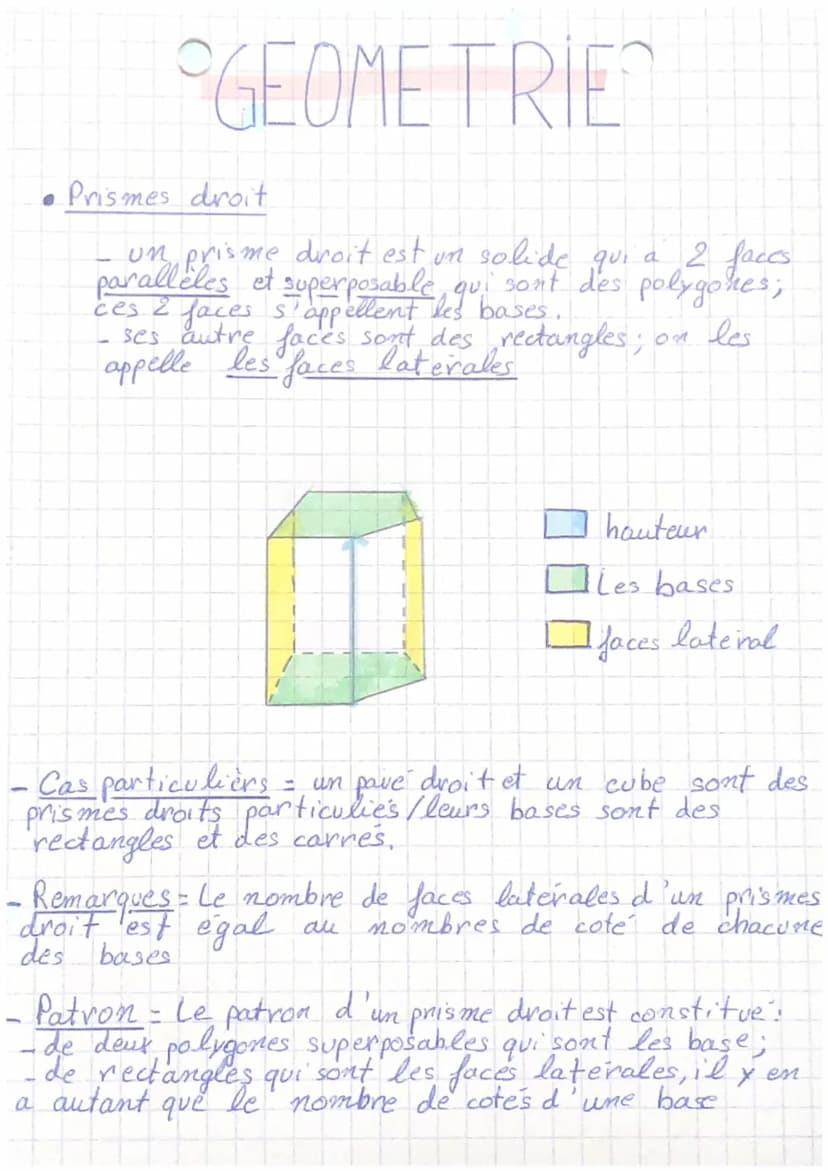 GEOMETRIE
• Prismes droit
- un prisme droit est un solide qui a 2 faces
parallèles et superposable qui sont des polygones;
ces 2 faces s'appellent les bases.
- ses autre faces sont des rectangles; on les
appelle les faces laterales
hauteur
Les bases
faces lateral
- Cas particulièrs = un pavé droit et un cube sont des
prismes droits particuliés/leurs bases sont des
rectangles et des carrés.
- Remarques = Le nombre de faces latérales d'un prismes
droit est égal au nombres de coté de chacune
des bases
- Patron = Le patron d'un prisme droit est constitué:
- de deux polygones superposables qui sont les base;
- de rectangles qui sont les faces latérales, il y en
a autant que le nombre de cotés d'une base